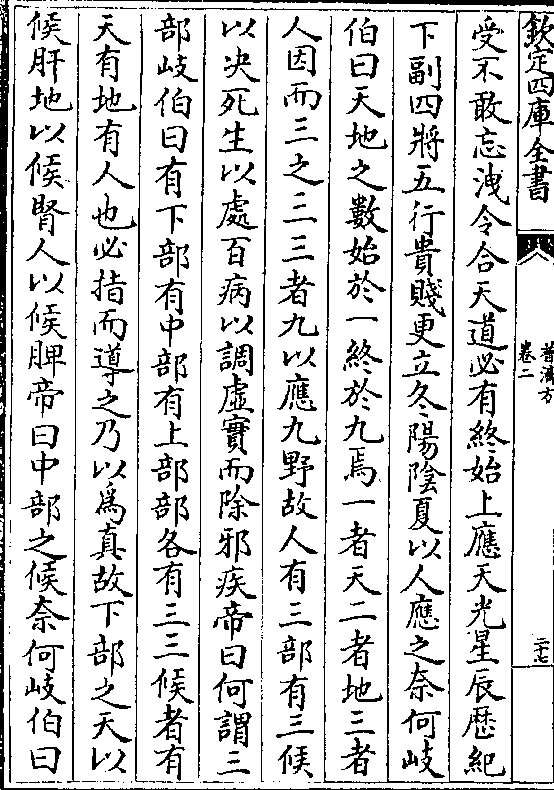 欽定四庫全書
普濟方
卷二
二十七
受不敢忘洩令合天道必有終始上應天光星辰歴紀
下副四將五行貴賤更立冬陽陰夏以人應之奈何岐
伯曰天地之數始於一終於九焉一者天二者地三者
人因而三之三三者九以應九野故人有三部有三候
以决死生以處百病以調虛實而除邪疾帝曰何謂三
部岐伯曰有下部有中部有上部部各有三三候者有
天有地有人也必指而導之乃以為真故下部之天以
候肝地以候腎人以候脾帝曰中部之候奈何岐伯曰